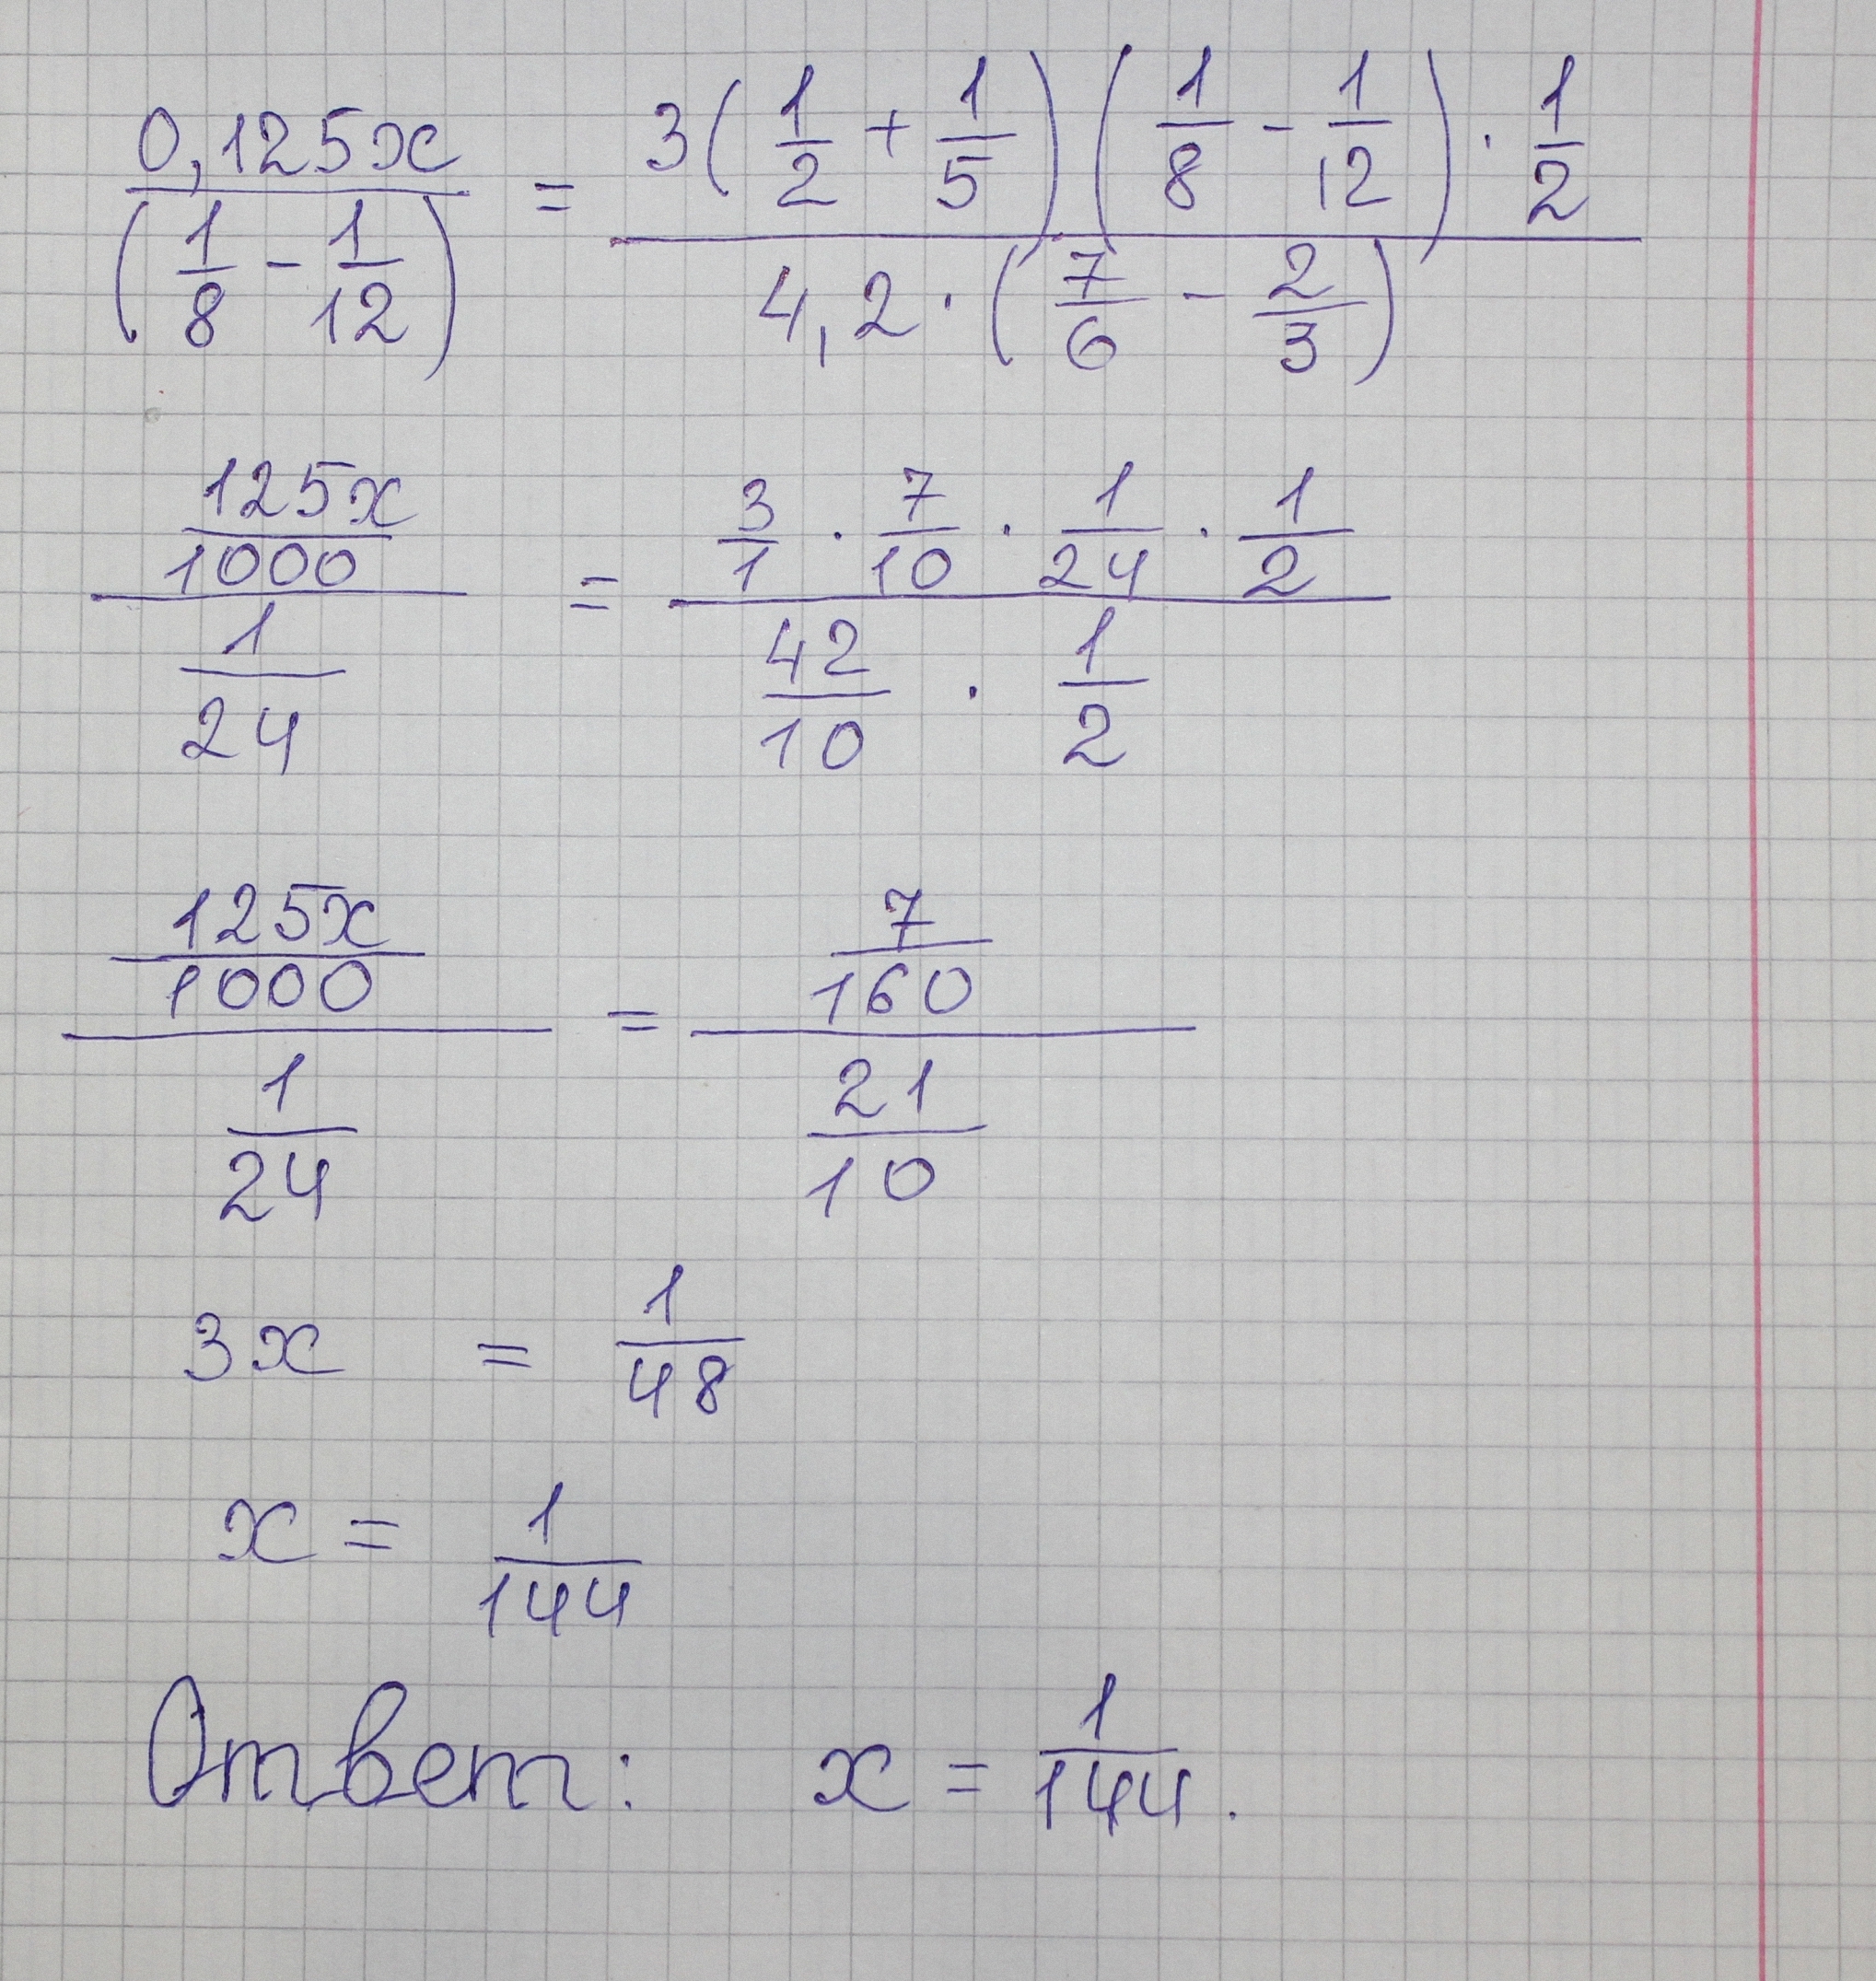 0,125x/(1/8 - 1/12) = 3(1/2 + 1/5)(1/8 - 1/12) · 1/2 / 4,2 · (7/6 - 2/3)
125x/1000 / 1/24 = 3/1 · 7/10 · 1/24 · 1/2 / 42/10 · 1/2
125x/1000 / 1/24 = 7/160 / 21/10
3x = 1/48
x = 1/144
Ответ: x = 1/144.